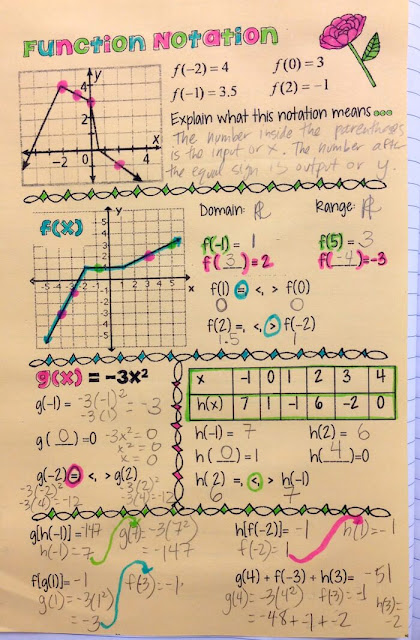 Function Notation
f(−2) = 4 f(0) = 3
f(−1) = 3.5 f(2) = −1
Explain what this notation means...
The number inside the parentheses
is the input or x. The number after
the equal sign is output or y.
y
4
2
−2
2
4
x
f(x)
Domain: ℝ Range: ℝ
f(-1) = 1 f(5) = 3
f( 3 ) = 2 f( -4 ) = -3
f(1) =, <, > f(0)
0 0
f(2) =, <, > f(-2)
1.5 1
y
5
4
3
2
1
-5 -4 -3 -2 -1 1 2 3 4 5
x
-1
-2
-3
-4
-5
g(x) = -3x²
g(-1) = -3(-1)² = -3
-3(1)
g( 0 ) = 0 -3x² = 0
x² = 0
x = 0
g(-2) =, <, > g(2)
-3(-2)² -3(2)²
-3(4) = -12 -3(4) = -12
x -1 0 1 2 3 4
h(x) 7 1 -1 6 -2 0
h(-1) = 7 h(2) = 6
h( 0 ) = 1 h( 4 ) = 0
h( 2) =, <, > h(-1)
6 7
g[h(-1)] = -147 g(7) = -3(7²)
h(-1) = 7 = -147
h[f(-2)] = -1 h(1) = -1
f(-2) = 1
f[g(1)] = -1
g(1) = -3(1²) f(-3) = -1
= -3
g(4) + f(-3) + h(3) = -51
g(4) = -3(4²) f(-3) = -1 h(3) =
= -48 + -1 + -2 -2